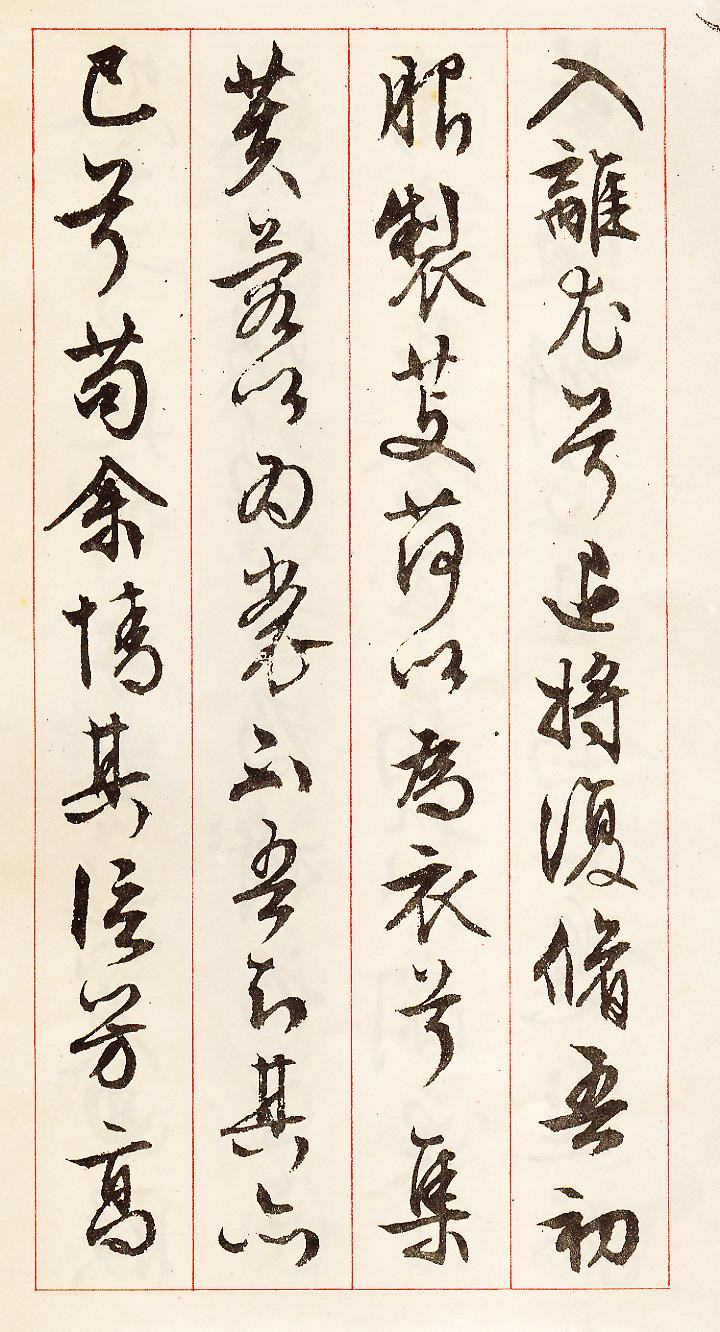 入離尤兮退將復脩吾初
服製芰荷以為衣兮集
芙蓉以為裳不吾知其亦
已兮苟余情其信芳高